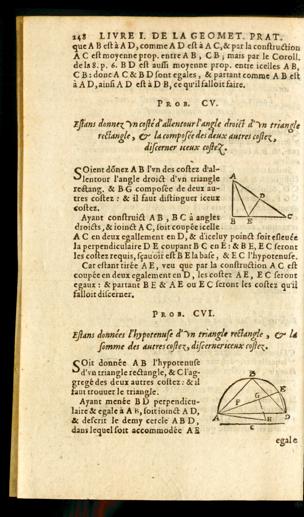 248 LIVRE I. DE LA GEOMET. PRAT.
que A B est à A D, comme A D est à A C, & par la construction
A C est moyenne prop. entre A B, C B; mais par le Coroll.
de la 8. p. 6. B D est aussi moyenne prop. entre icelles A B,
C B: donc A C & B D sont egales, & partant comme A B est
à A D, ainsi A D est à D B, ce qu'il falloit faire.
PROB. CV.
Estans donnez vn costé d'allentour l'angle droict d'vn triangle
rectangle, & la composée des deux autres costez,
discerner iceux costez.
SOient dõnez A B l'vn des costez d'al-
lentour l'angle droict d'vn triangle
rectang, & B G composée de deux au-
tres costez: & il faut distinguer iceux
costez.
Ayant construict A B, B C à angles
droicts, & ioinct A C, soit coupée icelle
A C en deux egallement en D, & d'iceluy poinct soit esleuée
la perpendiculaire D E coupant B C en E: & B E, E C seront
les costez requis, sçauoir est B E la base, & E C l'hypotenuse.
Car estant tirée A E, veu que par la construction A C est
coupée en deux egalement en D, les costez A E, E C seront
egaux: & partant B E & A E ou E C seront les costez qu'il
falloit discerner.
A
D
B E C
PROB. CVI.
Estans données l'hypotenuse d'vn triangle rectangle, & la
somme des autres costez, discerner iceux costez.
SOit donnée A B l'hypotenuse
d'vn triangle rectangle, & C l'ag-
gregé des deux autres costez: & il
faut trouuer le triangle.
Ayant menée B D perpendicu-
laire & egale à A B, soit ioinct A D,
& descrit le demy cercle A B D,
dans lequel soit accommodée A E
B
G E
F
A H D
C
egale